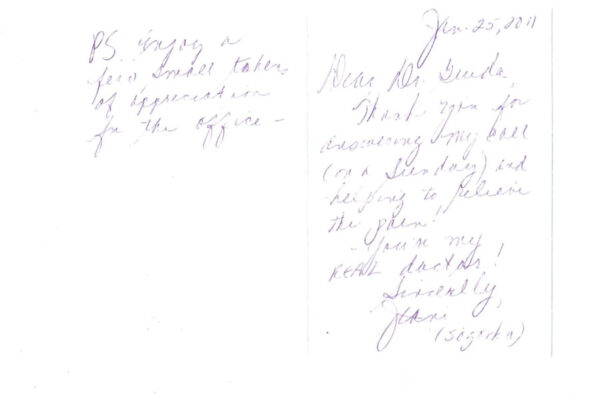 PS. Enjoy a
few small tokens
of appreciation
for the office -
Jan. 25, 2011
Dear Dr.
Thank you for
answering my call
(on a Sunday) and
helping to relieve
the pain!
- You're my
REAL doctor!
Sincerely,